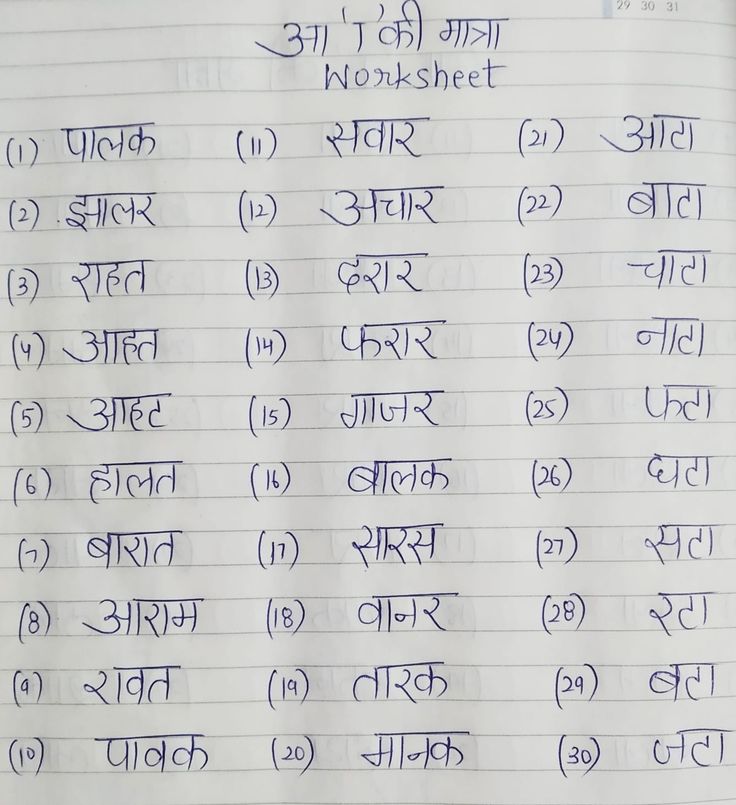 29 30 31
आ 'ा' की मात्रा
Worksheet
(1) पालक (11) सवार (21) आटा
(2) झालर (12) अचार (22) बाटा
(3) राहत (13) दरार (23) चाटा
(4) आहत (14) फरार (24) नाटा
(5) आहट (15) गाजर (25) फटा
(6) हालत (16) बालक (26) घटा
(7) बारात (17) सारस (27) सटा
(8) आराम (18) वानर (28) रटा
(9) रावत (19) तारक (29) बटा
(10) पावक (20) मानक (30) जटा